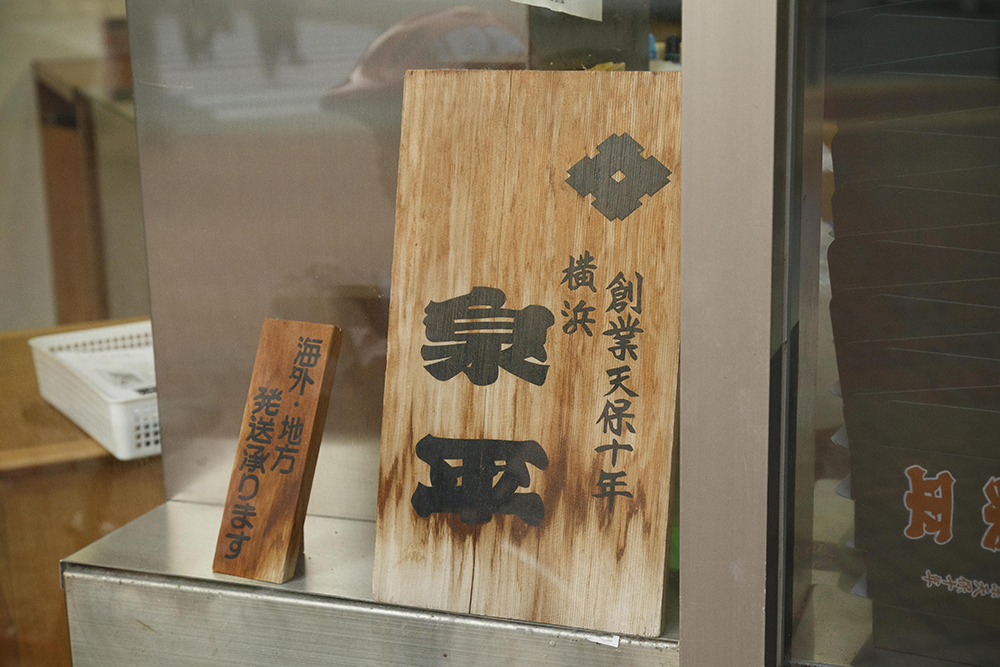 創業天保十年
横浜
泉平
海外・地方
発送承ります